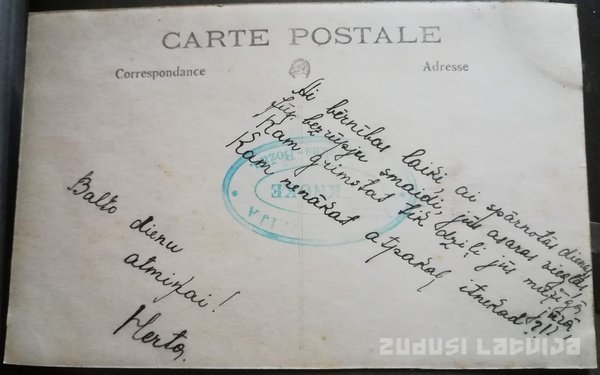 CARTE POSTALE
Correspondance
Adresse
Ai bērnības laiki, ai spārnotās dienas,
Jūs bezrūpju smaidi, jūs asaras vieglas,
Kam grimstat tik dziļi jūs mūžīgā
Kam nenākat atpakaļ itnekad?!!
KNOKE
Balto dienu
atmiņai!
Herta.
ZUDUSI LATVIJA